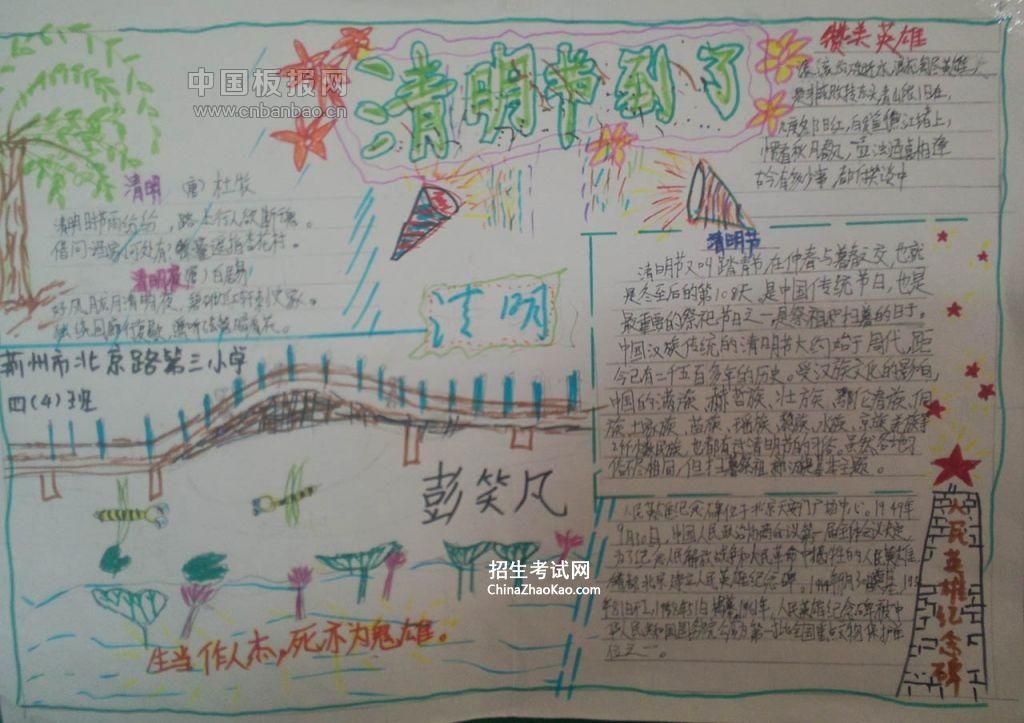 中国板报网
www.cnbanbao.cn
清明节到了
赞美英雄
是非成败转头空,青山依旧在,
惯看秋月春风,一壶浊酒喜相逢
古今有多少事,都付笑谈中
清明 (唐)杜牧
清明时节雨纷纷,路上行人欲断魂。
借问酒家何处有,牧童遥指杏花村。
清明夜(唐)白居易
好风胧月清明夜,
清明
荆州市北京路第三小学
四(4)班
彭笑凡
生当作人杰,死亦为鬼雄。
清明节
清明节又叫踏青节,在仲春与暮春之交,也就
是冬至后的第108天。是中国传统节日,也是
最重要的祭祀节日之一,是祭祖和扫墓的日子。
中国汉族传统的清明节大约始于周代,距
今已有二千五百多年的历史。受汉族文化的影响,
中国的满族、赫哲族、壮族、鄂伦春族、侗
族、土家族、苗族、瑶族、黎族、水族、京族、羌族等
24个少数民族,也都有过清明节的习俗。虽然各地习
俗不尽相同,但扫墓祭祖、踏青是基本主题。
人民英雄纪念碑位于北京天安门广场中心。1949年
9月30日,中国人民政治协商会议第一届全体会议决定,
为了纪念在人民解放战争和人民革命中牺牲的人民英雄
人民英雄纪念碑被中
位之一。
人民英雄纪念碑
招生考试网
ChinaZhaoKao.com